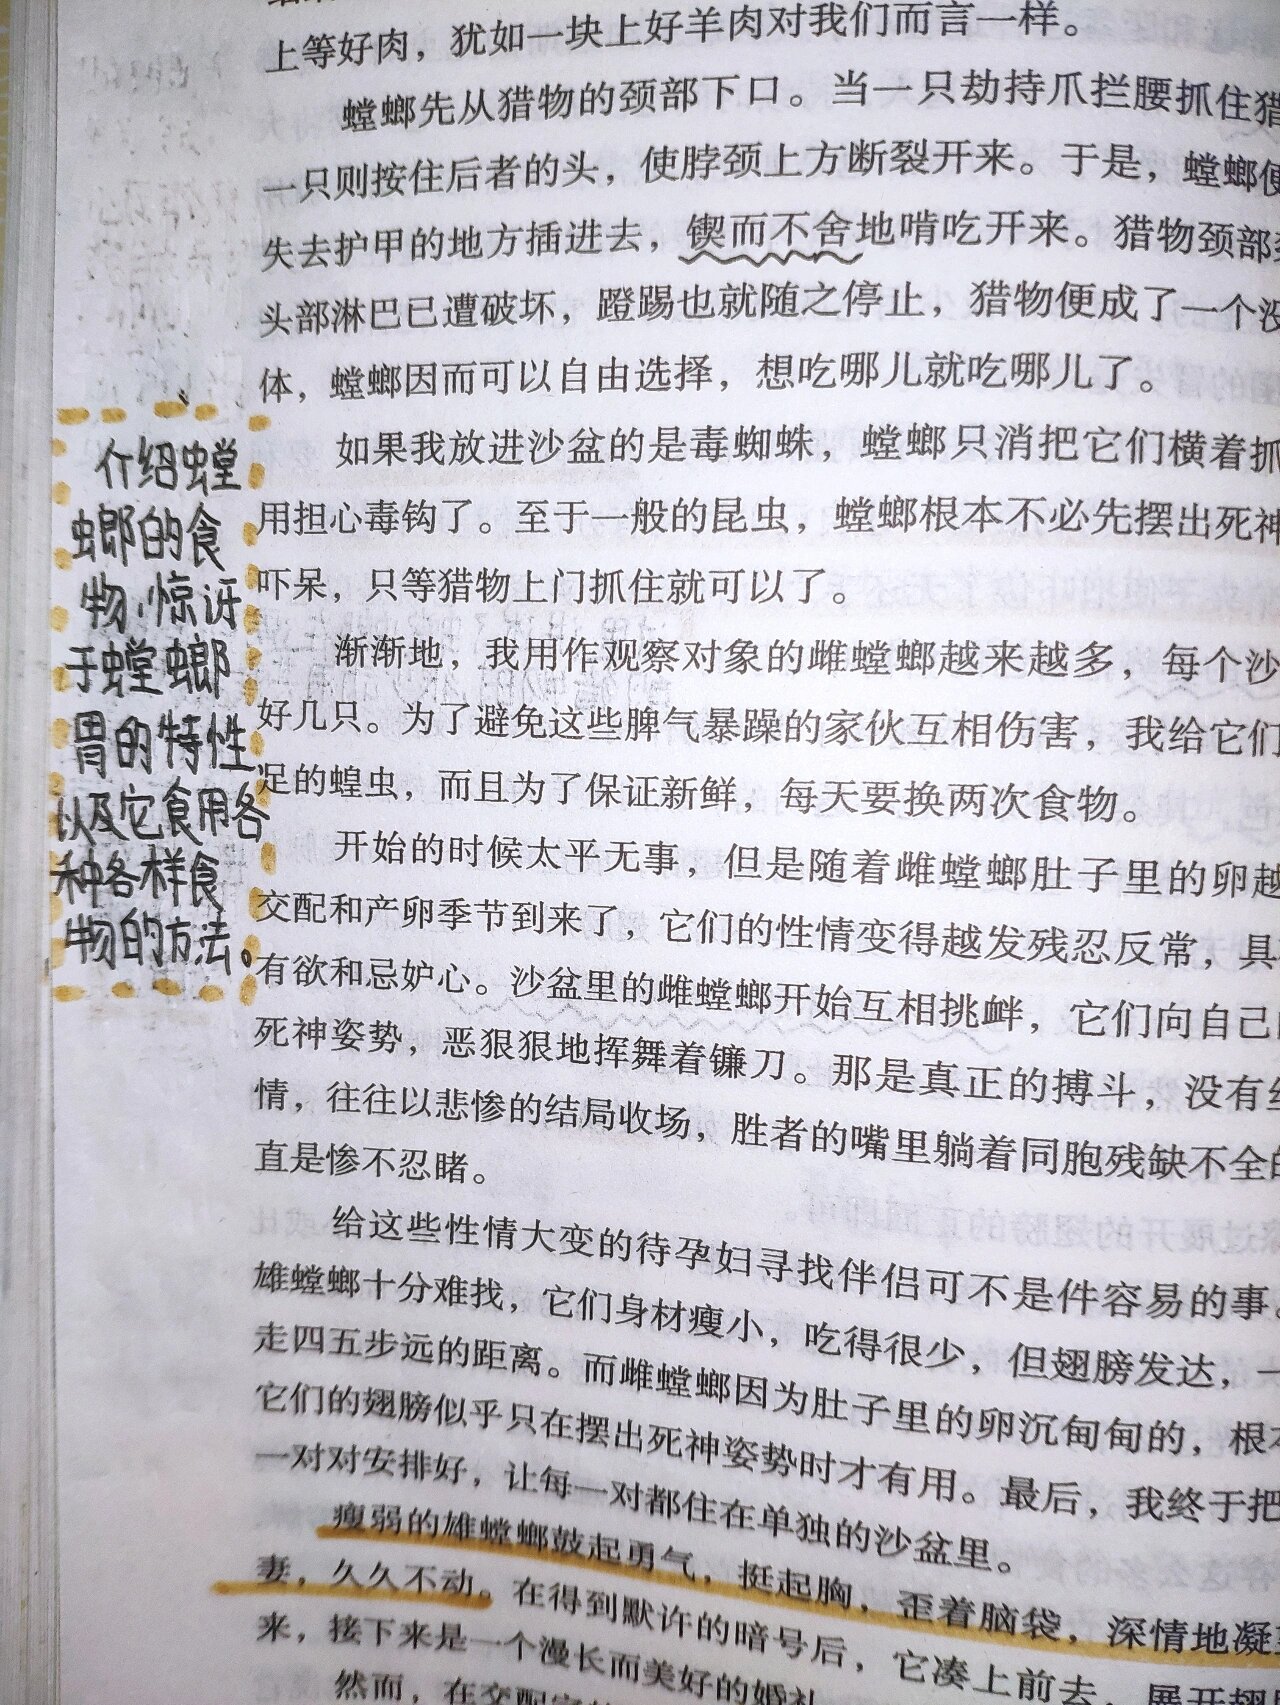 上等好肉，犹如一块上好羊肉对我们而言一样。
螳螂先从猎物的颈部下口。当一只劫持爪拦腰抓住猎
一只则按住后者的头，使脖颈上方断裂开来。于是，螳螂便
失去护甲的地方插进去，锲而不舍地啃吃开来。猎物颈部
头部淋巴已遭破坏，蹬踢也就随之停止，猎物便成了一个没
体，螳螂因而可以自由选择，想吃哪儿就吃哪儿了。
如果我放进沙盆的是毒蜘蛛，螳螂只消把它们横着抓
用担心毒钩了。至于一般的昆虫，螳螂根本不必先摆出死神
吓呆，只等猎物上门抓住就可以了。
渐渐地，我用作观察对象的雌螳螂越来越多，每个沙
好几只。为了避免这些脾气暴躁的家伙互相伤害，我给它们
足的蝗虫，而且为了保证新鲜，每天要换两次食物。
开始的时候太平无事，但是随着雌螳螂肚子里的卵越
交配和产卵季节到来了，它们的性情变得越发残忍反常，具
有欲和忌妒心。沙盆里的雌螳螂开始互相挑衅，它们向自己
死神姿势，恶狠狠地挥舞着镰刀。那是真正的搏斗，没有丝
情，往往以悲惨的结局收场，胜者的嘴里躺着同胞残缺不全的
直是惨不忍睹。
给这些性情大变的待孕妇寻找伴侣可不是件容易的事。
雄螳螂十分难找，它们身材瘦小，吃得很少，但翅膀发达，一
走四五步远的距离。而雌螳螂因为肚子里的卵沉甸甸的，根本
它们的翅膀似乎只在摆出死神姿势时才有用。最后，我终于把
一对对安排好，让每一对都住在单独的沙盆里。
瘦弱的雄螳螂鼓起勇气，挺起胸，歪着脑袋，深情地凝望
妻，久久不动。在得到默许的暗号后，它凑上前去，展开翅
来，接下来是一个漫长而美好的婚礼
然而，在交配
介绍螳
螂的食
物，惊讶
于螳螂
胃的特性
以及它食用各
种各样食
物的方法。